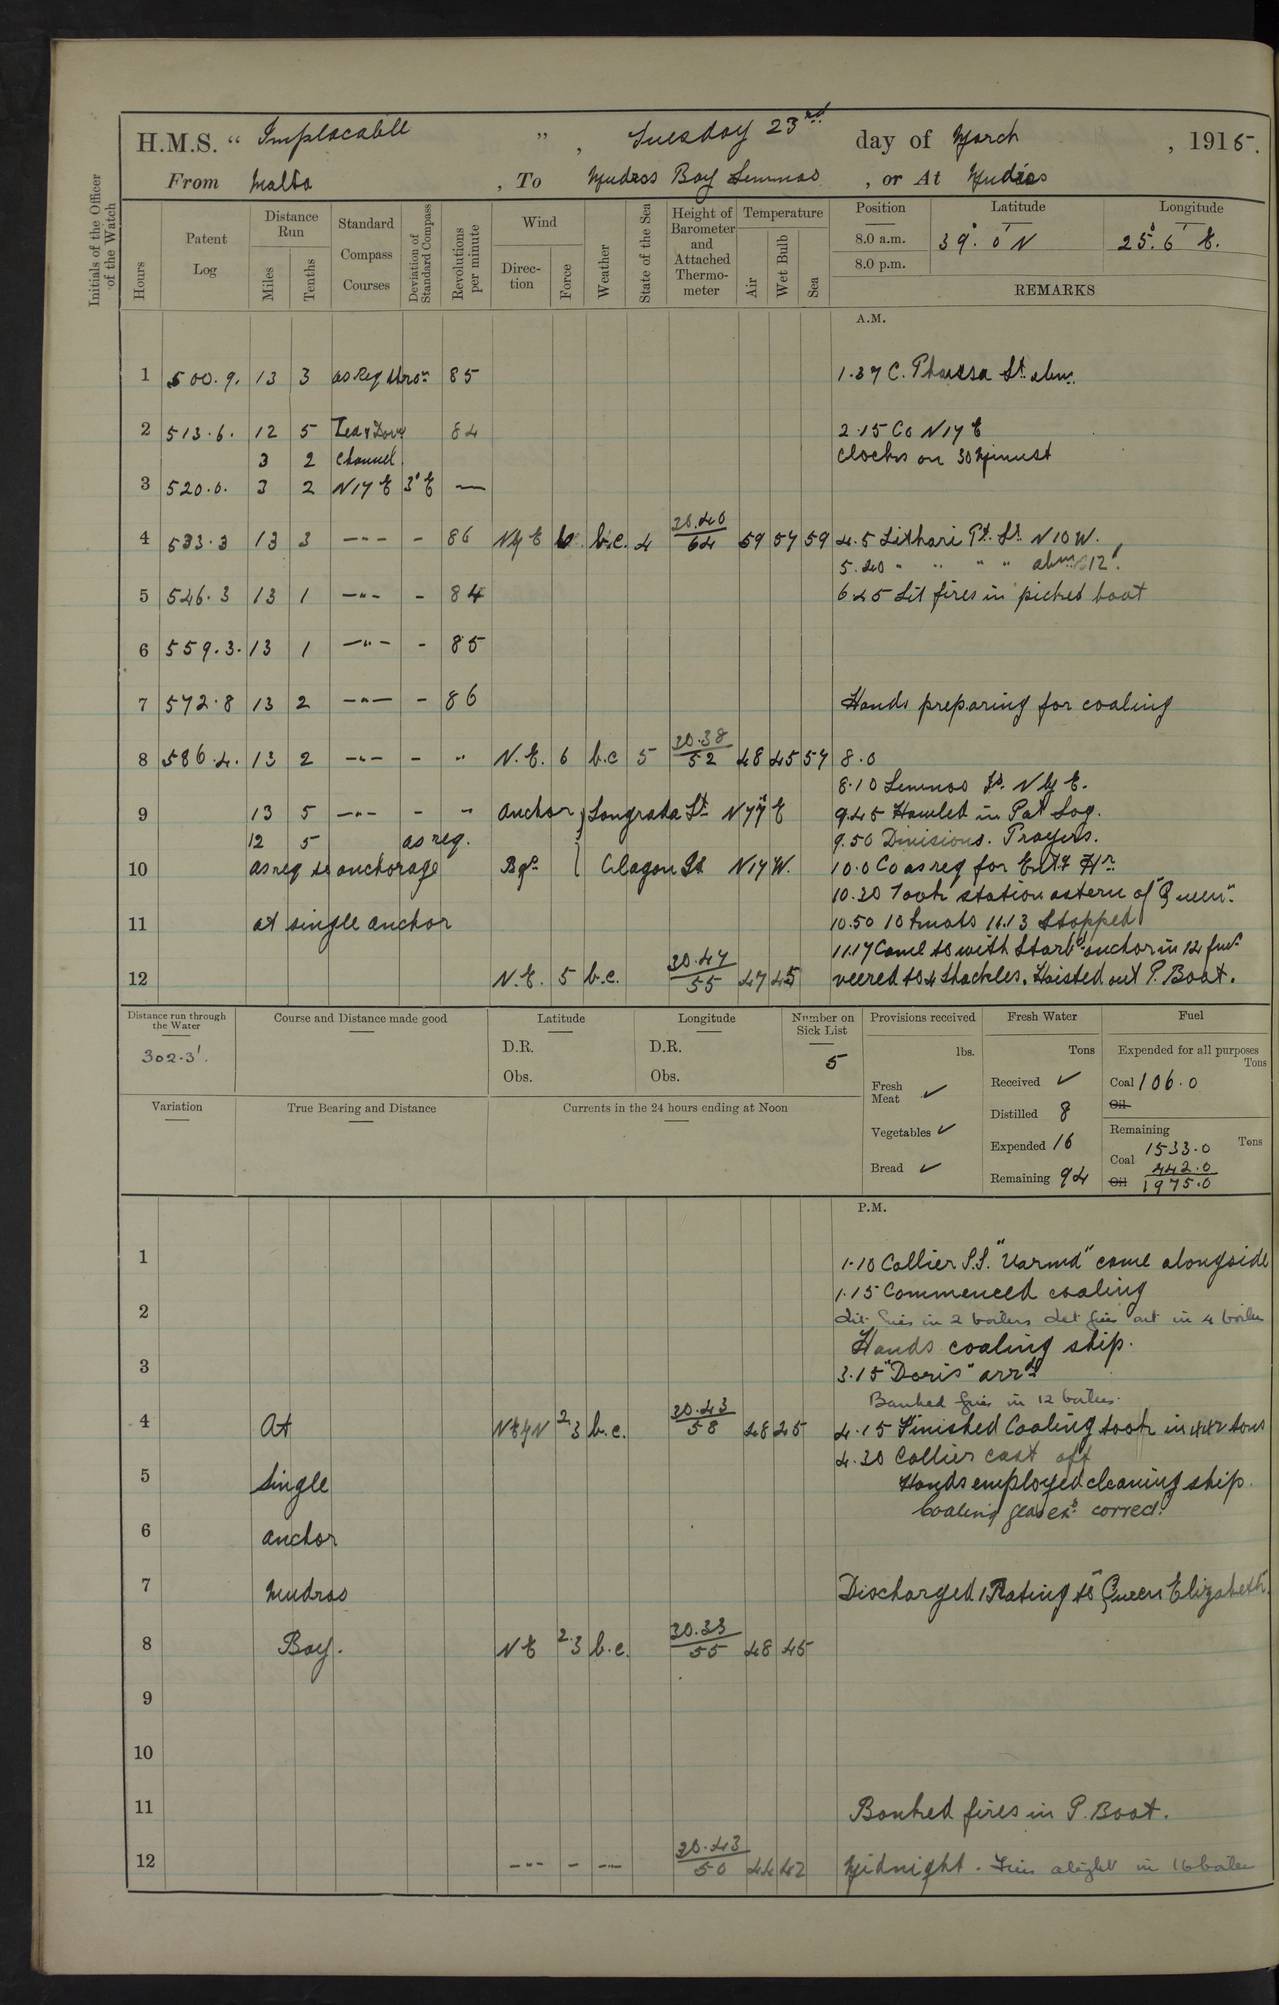 H.M.S. "Implacable", Tuesday 23rd day of March, 1915.
From Malta, To Mudros Bay Lemnos, or At Mudros
Initials of the Officer of the Watch
Hours
Patent Log
Distance Run
Miles
Tenths
Standard Compass Courses
Deviation of Standard Compass
Revolutions per minute
Wind
Direction
Force
Weather
State of the Sea
Height of Barometer and Attached Thermometer
Temperature
Air
Wet Bulb
Sea
Position
8.0 a.m.
8.0 p.m.
Latitude
39° 0' N
Longitude
25° 6' E.
REMARKS
A.M.
1 500.9. 13 3 as req thro' 85 1.37 C. Phassa Lt abm.
2 513.6. 12 5 Zea & Doro 84 2.15 Co N17E
3 2 Channel. Clocks on 30 Minust
3 520.0. 3 2 N17E 3°E —
4 533.3 13 3 —"— - 86 NlyE b.c. 4 30.40/64 59 57 59 4.5 Lithari Pt. Lt. N10W.
5.40 " " " " abm. 12'.
5 546.3 13 1 —"— - 84 645 Lit fires in picket boat
6 559.3. 13 1 —"— - 85
7 572.8 13 2 —"— - 86 Hands preparing for coaling
8 586.4. 13 2 —"— - " N.E. 6 b.c 5 30.38/52 48 45 57 8.0
8.10 Lemnos Id. N by E.
9 13 5 —"— - " Anchor Sangrada Lt N77E 9.45 Hauled in Pat Log.
12 5 as req. 9.50 Divisions. Prayers.
10 as req to anchorage Bgs. Id N17W. 10.0 Co as req for Entg Hr.
10.20 Took station astern of "Queen".
11 at single anchor 10.50 10 knots 11.13 Stopped
11.17 Came to with Starbd anchor in 12 fms
12 N.E. 5 b.c. 30.47/55 47 45 veered to 4 shackles. Hoisted out P. Boat.
Distance run through the Water
302.3'.
Course and Distance made good
Latitude
D.R.
Obs.
Longitude
D.R.
Obs.
Number on Sick List
5
Provisions received
lbs.
Fresh Meat ✓
Vegetables ✓
Bread ✓
Fresh Water
Tons
Received ✓
Distilled 8
Expended 16
Remaining 94
Fuel
Expended for all purposes
Tons
Coal 106.0
Oil
Remaining
Tons
1533.0
Coal 442.0
Oil 1975.0
Variation
True Bearing and Distance
Currents in the 24 hours ending at Noon
P.M.
1 1.10 Collier S.S. came alongside
1.15 Commenced coaling
2 Lit fires in 2 boilers Let fires out in 4 boilers
Hands coaling ship.
3 3.15 "Doris" arrd
Banked fires in 12 boilers.
4 At NEyN 2.3 b.c. 30.43/58 48 45 4.15 Finished Coaling took in 442 tons
4.30 Collier cast off
5 Single Hands employed cleaning ship.
Coaling gear exd. correct.
6 anchor
7 Mudros Discharged 1 Rating to "Queen Elizabeth.
8 Bay. NE 2.3 b.c. 30.33/55 48 45
9
10
11 Banked fires in P. Boat.
12 —"— - —"— 30.43/50 44 42 Midnight. Fires alight in 16 boilers